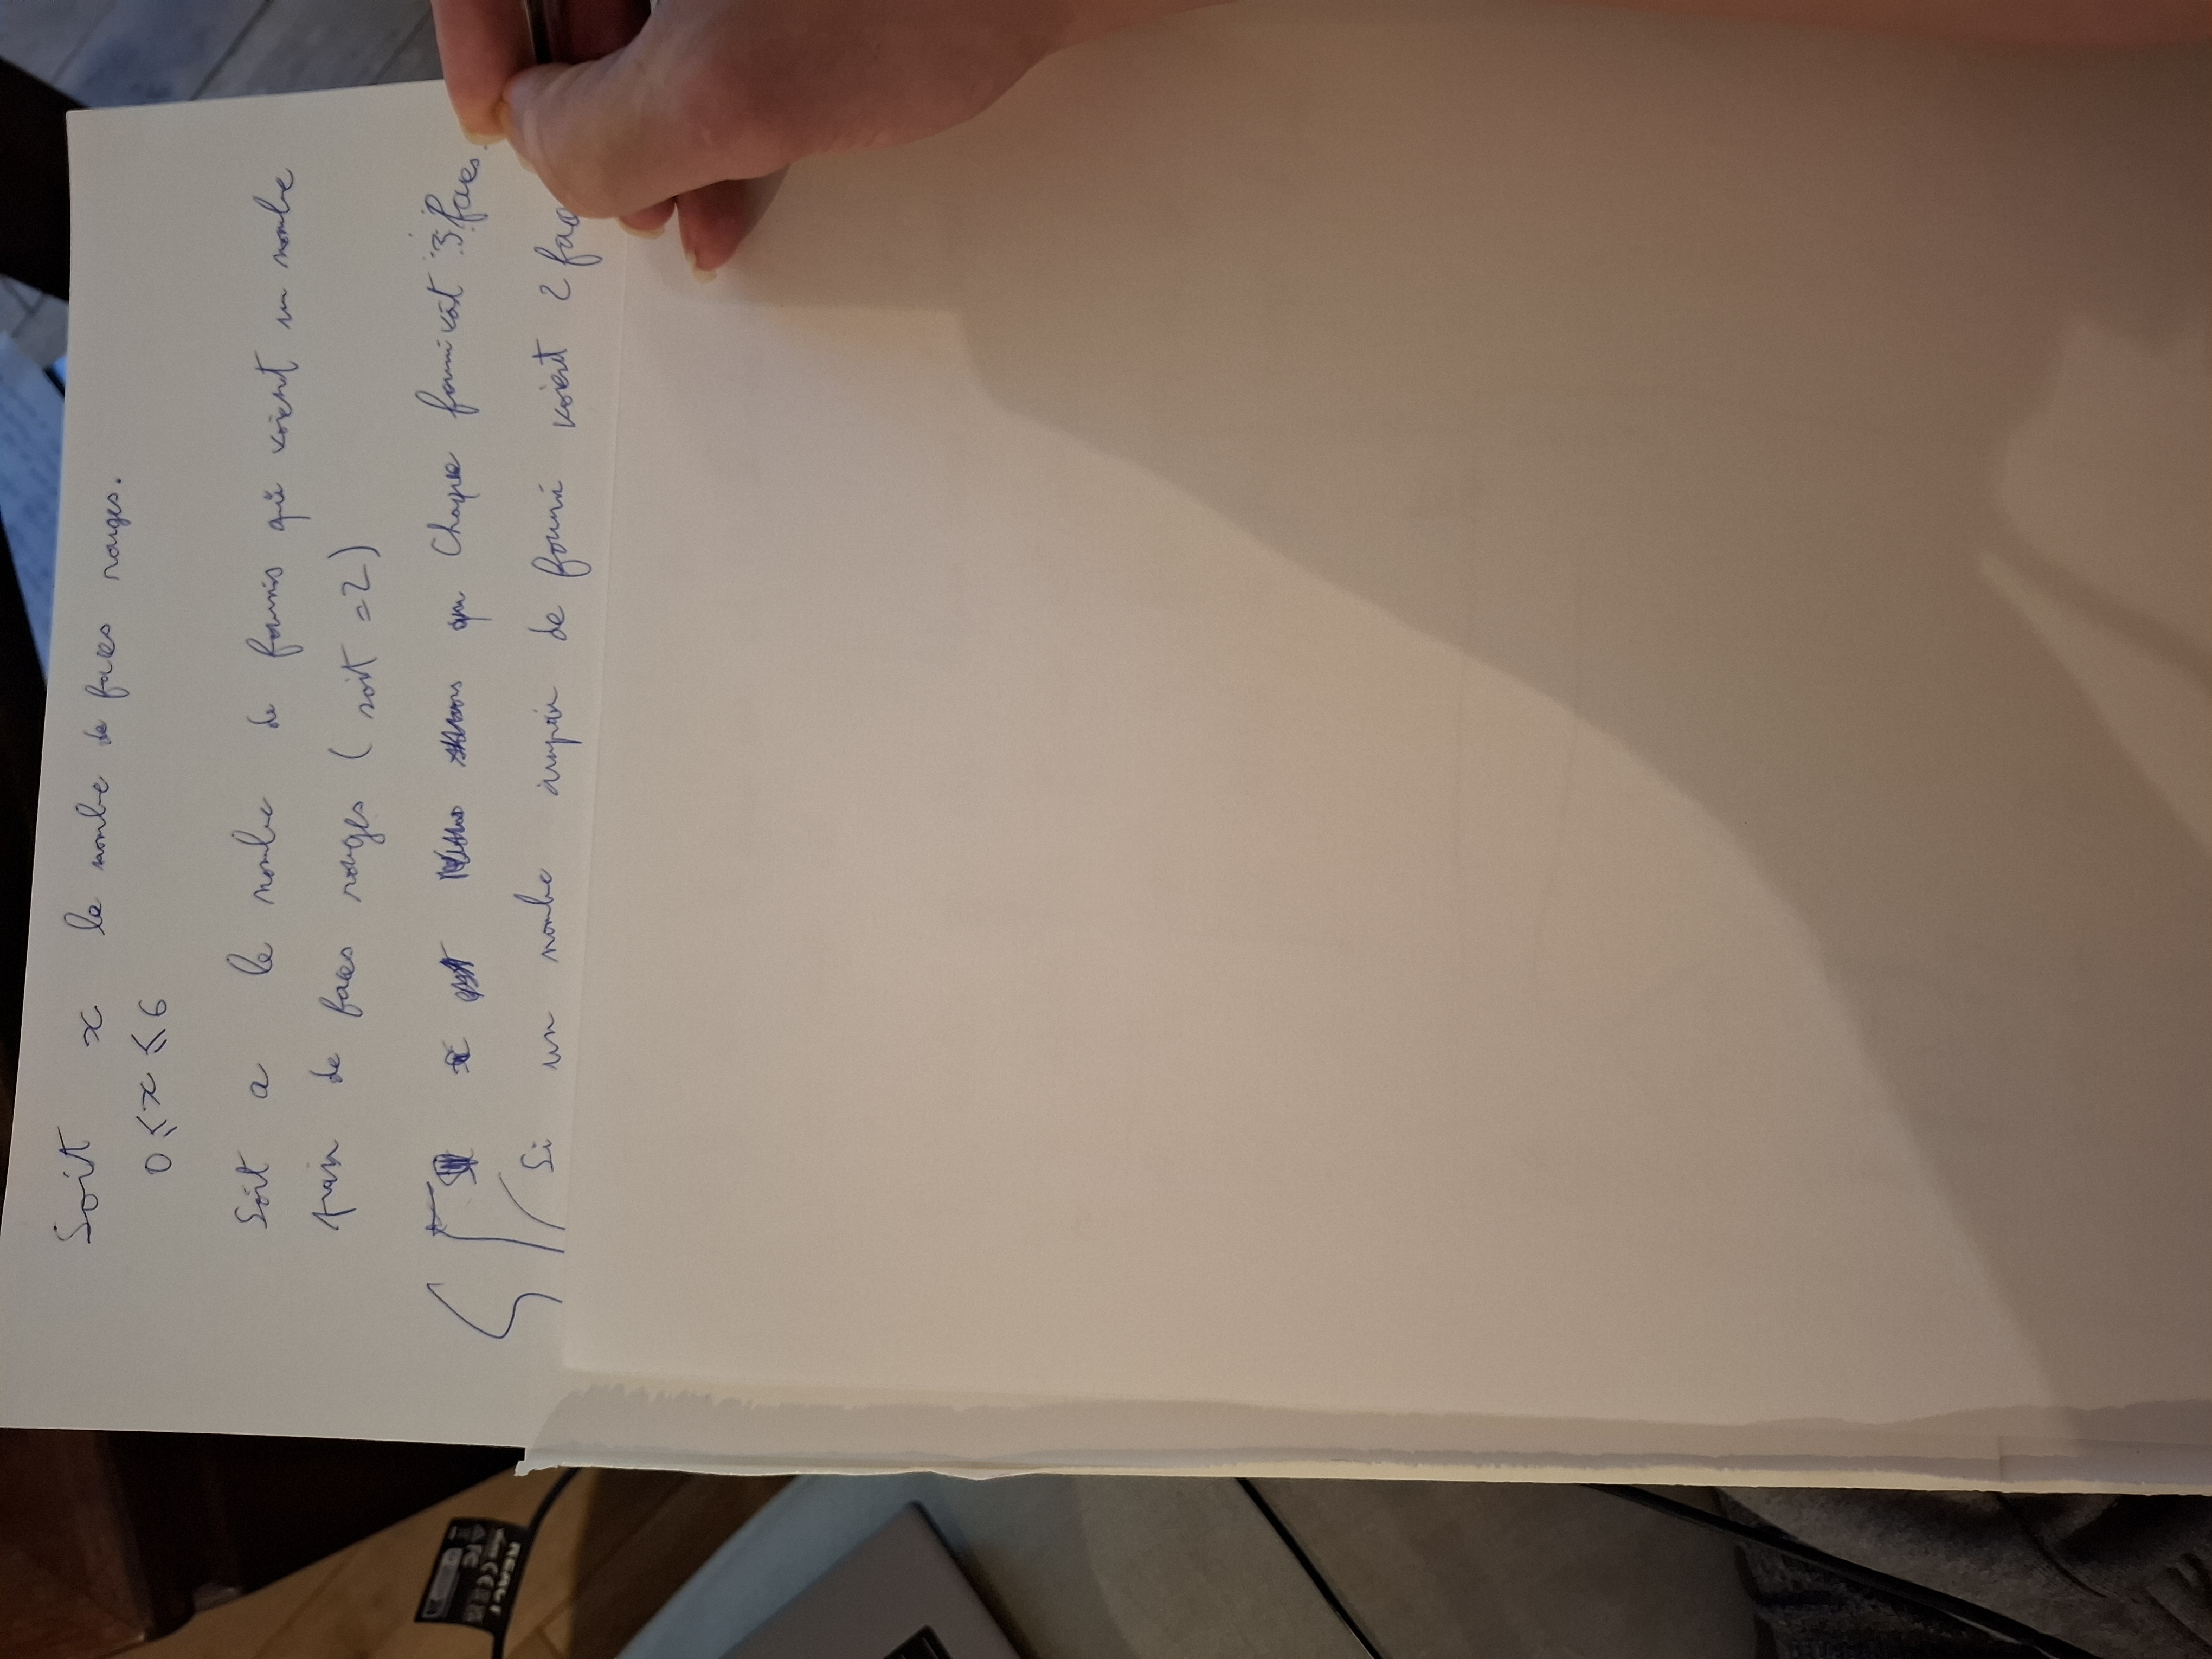 Soit x le nombre de faces rouges.
0 ⩽ x ⩽ 6
Soit a le nombre de fourmis qui voient un nombre
pair de faces rouges (soit =2)
Chaque fourmi voit 3 faces.
Si un nombre impair de fourmi voient 2 fac